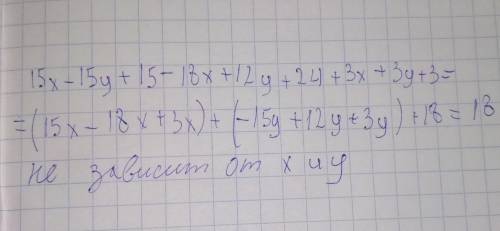 15x-15y+15-18x+12y+24+3x+3y+3=
=(15x-18x+3x)+(-15y+12y+3y)+18=18
не зависит от x и y